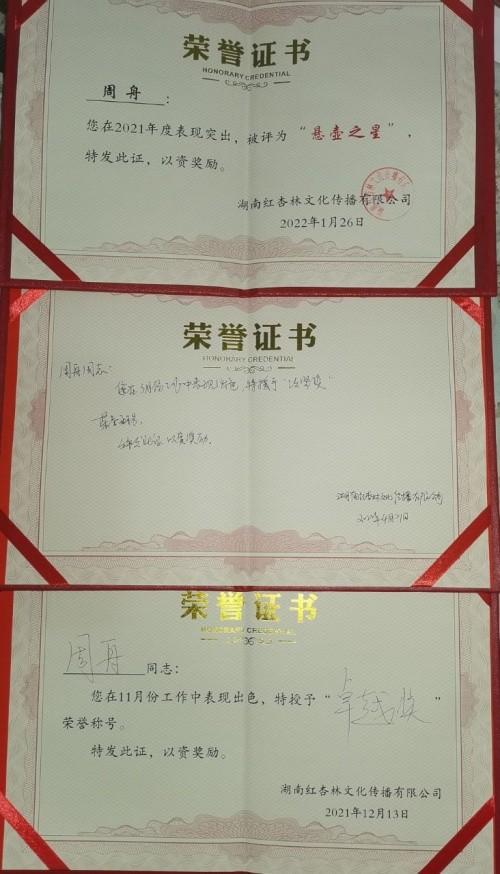 荣誉证书
HONORARY CREDENTIAL
周舟：
您在2021年度表现突出，被评为“悬壶之星”，
特发此证，以资奖励。
湖南红杏林文化传播有限公司
2022年1月26日
荣誉证书
HONORARY CREDENTIAL
周舟同志：
您在3月份工作中表现出色，特授予“
荣誉称号。
特发此证，以资奖励。
荣誉证书
HONORARY CREDENTIAL
周舟同志：
您在11月份工作中表现出色，特授予“卓越奖”
荣誉称号。
特发此证，以资奖励。
湖南红杏林文化传播有限公司
2021年12月13日